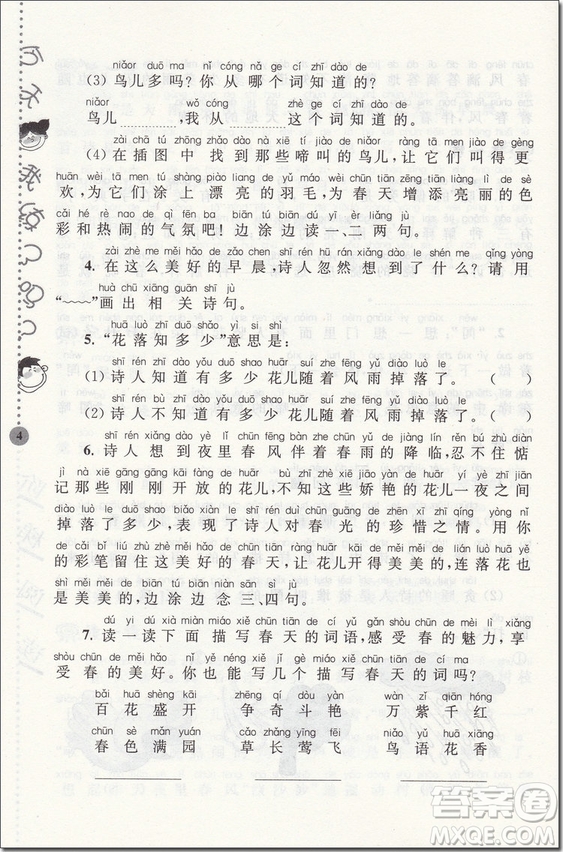 niǎor duō ma nǐ cóng nǎ gè cí zhī dào de
(3) 鸟儿多吗?你从哪个词知道的?
niǎor wǒ cóng zhè ge cí zhī dào de
鸟儿 ,我从 这个词知道的。
zài chā tú zhōng zhǎo dào nà xiē tí jiào de niǎor ràng tā men jiào de gèng
(4) 在插图中找到那些啼叫的鸟儿,让它们叫得更
huān wèi tā men tú shàng piào liang de yǔ máo wèi chūn tiān zēng tiān liàng lì de sè
欢,为它们涂上漂亮的羽毛,为春天增添亮丽的色
cǎi hé rè nao de qì fēn ba biān tú biān dú yī èr liǎng jù
彩和热闹的气氛吧!边涂边读一、二两句。
zài zhè me měi hǎo de zǎo chen shī rén xiǎng dào le shén me qǐng yòng
4. 在这么美好的早晨,诗人想到了什么?请用
huà chū xiāng guān shī jù
“﹏﹏”画出相关诗句。
huā luò zhī duō shǎo yì si shì
5. “花落知多少”意思是:
shī rén zhī dào yǒu duō shao huār suí zhe fēng yǔ diào luò le
(1) 诗人知道有多少花儿随着风雨掉落了。 ( )
shī rén bù zhī dào yǒu duō shao huār suí zhe fēng yǔ diào luò le
(2) 诗人不知道有多少花儿随着风雨掉落了。( )
4
shī rén xiǎng dào yè lǐ chūn fēng bàn zhe chūn yǔ de jiàng lín rěn bú zhù diàn
6. 诗人想到夜里春风伴着春雨的降临,忍不住惦
jì nà xiē gāng gāng kāi fàng de huār bù zhī dào zhè xiē jiāo yàn de huār yí yè zhī jiān
记那些刚刚开放的花儿,不知道这些娇艳的花儿一夜之间
diào luò le duō shao biǎo xiàn le shī rén duì chūn guāng de zhēn xī zhī qíng yòng nǐ
掉落了多少,表现了诗人对春光的珍惜之情。用你
de cǎi bǐ liú zhù zhè měi hǎo de chūn tiān ràng huār kāi de měi měi de lián luò huā yě
的彩笔留住这美好的春天,让花儿开得美美的,连落花也
shì měi měi de biān tú biān niàn sān sì jù
是美美的,边涂边念三、四句。
dú yi dú xià miàn miáo xiě chūn tiān de cí yǔ gǎn shòu chūn de mèi lì xiǎng
7. 读一读下面描写春天的词语,感受春的魅力,享
shòu chūn de měi hǎo nǐ néng xiě jǐ gè miáo xiě chūn tiān de cí ma
受春的美好。你能写几个描写春天的词吗?
bǎi huā shèng kāi zhēng qí dòu yàn wàn zǐ qiān hóng
百花盛开 争奇斗艳 万紫千红
chūn sè mǎn yuán cǎo zhǎng yīng fēi niǎo yǔ huā xiāng
春色满园 草长莺飞 鸟语花香
答案圈
MXQE.COM